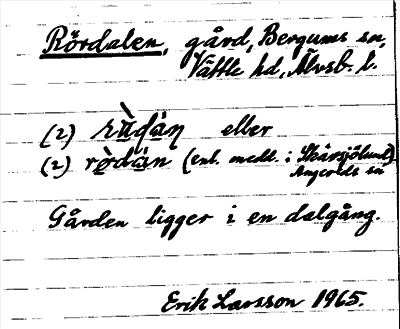 Rördalen, gård, Bergums sn,
Vättle hd, Älvsb. l.
(2) rùdán eller
(2) ròdán (enl. medd. i Skårsjölund,
Angereds sn
Gården ligger i en dalgång.
Erik Larsson 1965.